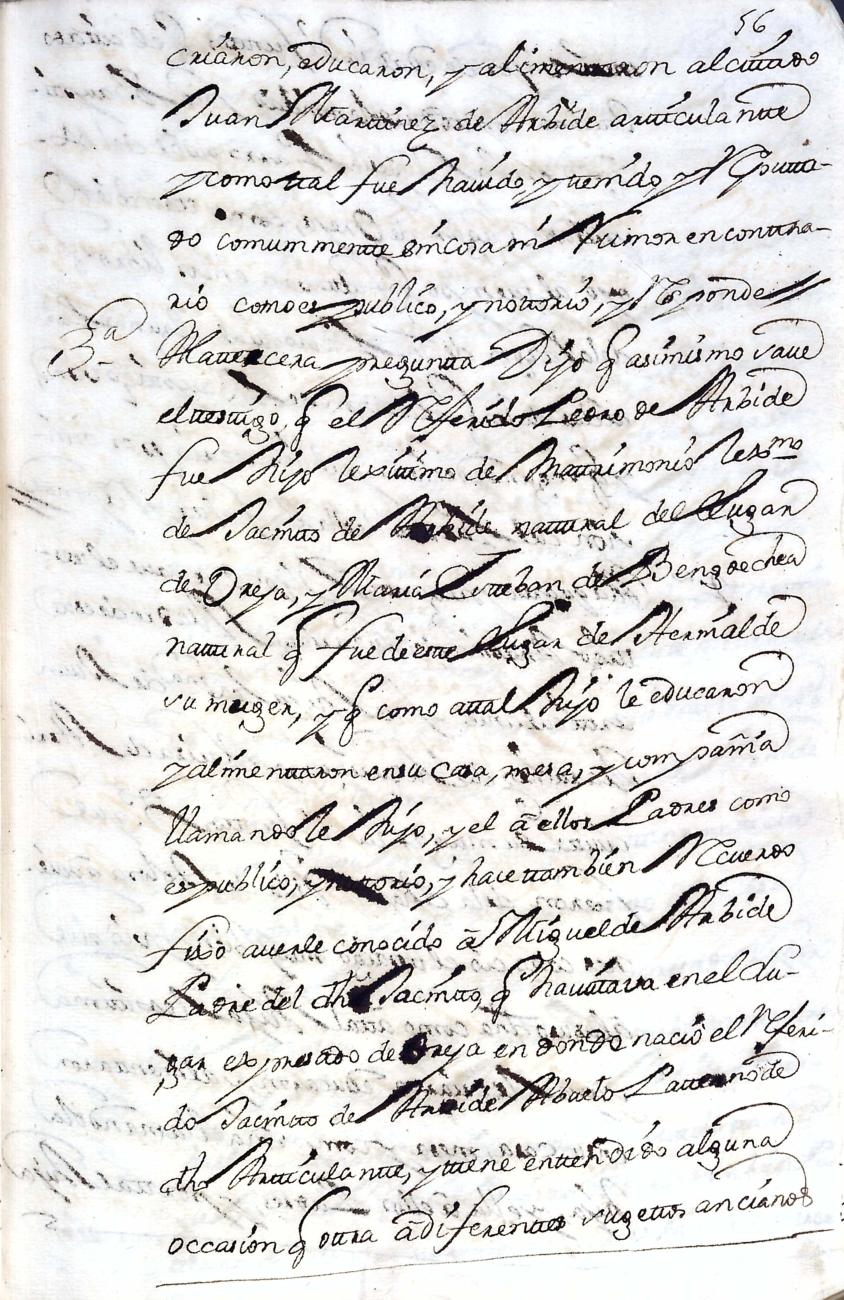 56
criaron, educaron, y alimentaron al citado
Juan Martinez de Arbide articulantte
y como ttal fue havido y tenido y rreputta-
do comunmentte sin cosa ni rrumor en conttra-
rio como es publico, y nottorio, y rresponde //
3.ª A la ttercera preguntta Dijo q asimismo save
el testigo, q el rreferido Pedro de Arbide
fue hijo lexitimo de Mattrimonio lexmo
de Jacintto de Arbide nattural del Lugar
de Oreja, y Maria Estteban de Bengoechea
nattural q fue de estte Lugar de Hernialde
su muger, y q como a ttal hijo le educaron
y alimenttaron en su casa, mesa, y compañia
llamandole hijo, y el a ellos Padres como
es publico, y nottorio, y hace ttambien rrecuerdo
fixo averle conocido a Miguel de Arbide
Padre del dho Jacintto, q havittava en el Lu-
gar expresado de Oreja en donde nacio el rreferi-
do Jacintto de Arbide Abuelo Patterno de
dho Articulantte, y ttiene enttendido alguna
occasion q ottra a diferenttes sugettos ancianos